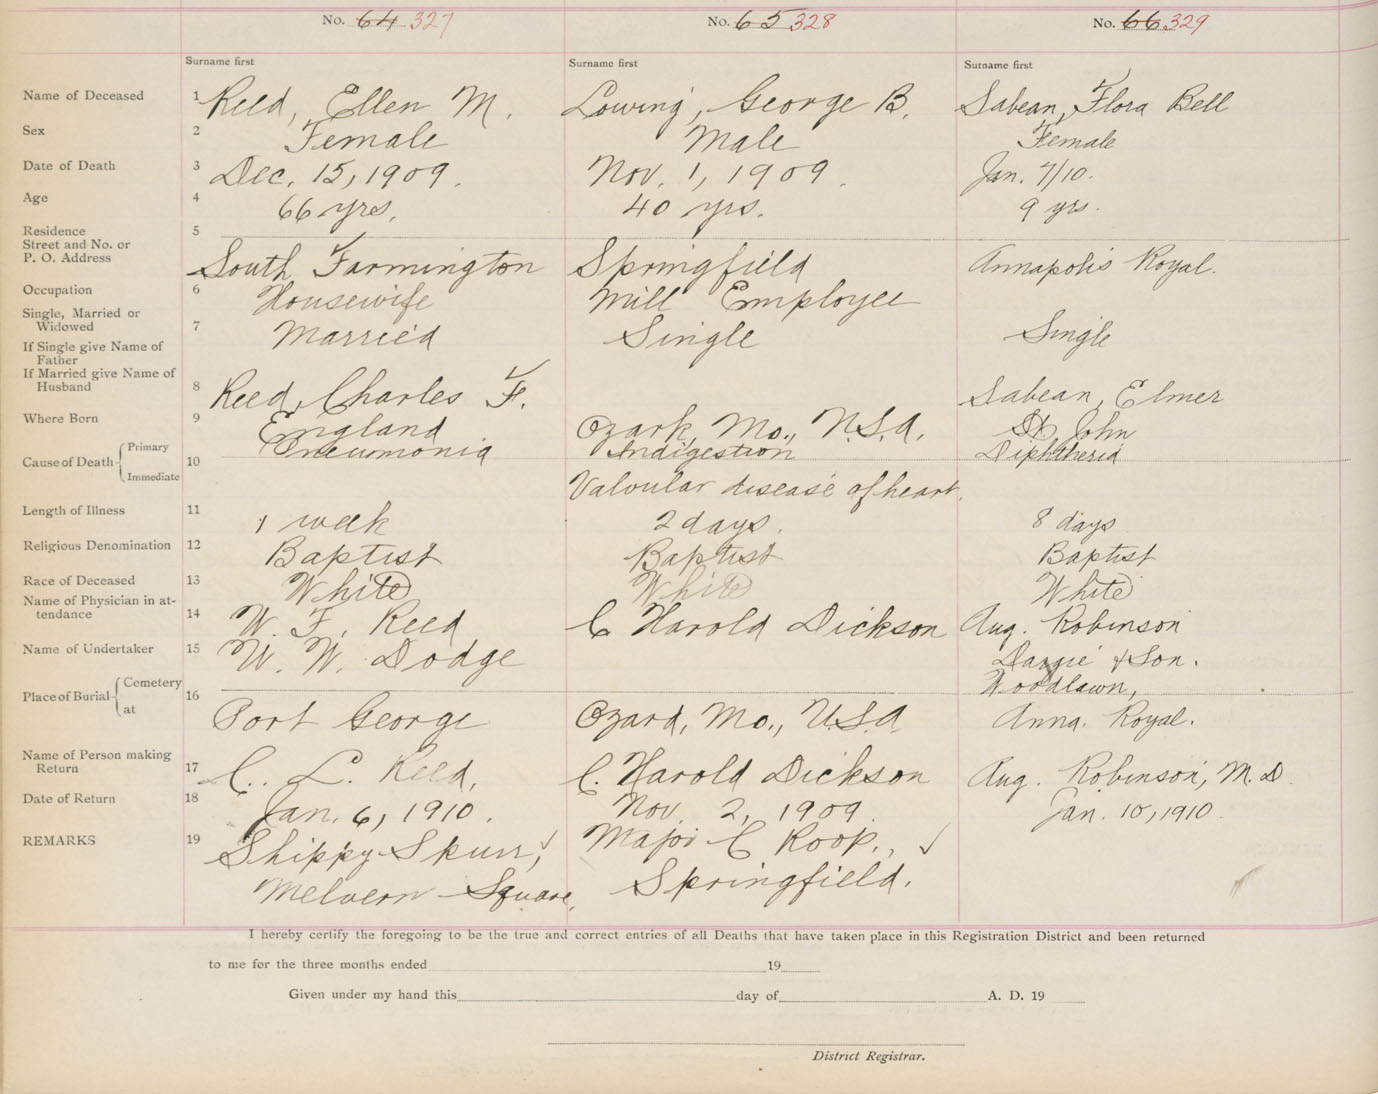 No. 64 327 No. 65 328 No. 66 329
Surname first Surname first Surname first
Name of Deceased 1 Reed, Ellen M. Lowing, George B. Sabean, Flora Bell
Sex 2 Female Male Female
Date of Death 3 Dec. 15, 1909. Nov. 1, 1909. Jan. 7/10.
Age 4 66 yrs. 40 yrs. 9 yrs.
Residence 5
Street and No. or
P. O. Address South Farmington Springfield Annapolis Royal.
Occupation 6 Housewife Mill Employee
Single, Married or
Widowed 7 Married Single Single
If Single give Name of
Father
If Married give Name of
Husband 8 Reed, Charles F. Sabean, Elmer
Where Born 9 England Ozark, Mo., U.S.A. St John
Cause of Death Primary 10 Pneumonia Indigestion Diphtheria
Immediate Valvular disease of heart.
Length of Illness 11 1 week 2 days. 8 days
Religious Denomination 12 Baptist Baptist Baptist
Race of Deceased 13 White White White
Name of Physician in at-
tendance 14 W. F. Reed C Harold Dickson Aug. Robinson
Name of Undertaker 15 W. W. Dodge Dargie & Son.
Place of Burial Cemetery 16 Woodlawn,
at Port George Ozard, Mo., U.S.A Anna. Royal.
Name of Person making
Return 17 C. L. Reed, C. Harold Dickson Aug. Robinson, M.D.
Date of Return 18 Jan. 6, 1910. Nov. 2, 1909. Jan. 10, 1910.
REMARKS 19 Shippy Spurr, Major C Roop.,
Melvern Square, Springfield.
I hereby certify the foregoing to be the true and correct entries of all Deaths that have taken place in this Registration District and been returned
to me for the three months ended 19
Given under my hand this day of A. D. 19
District Registrar.